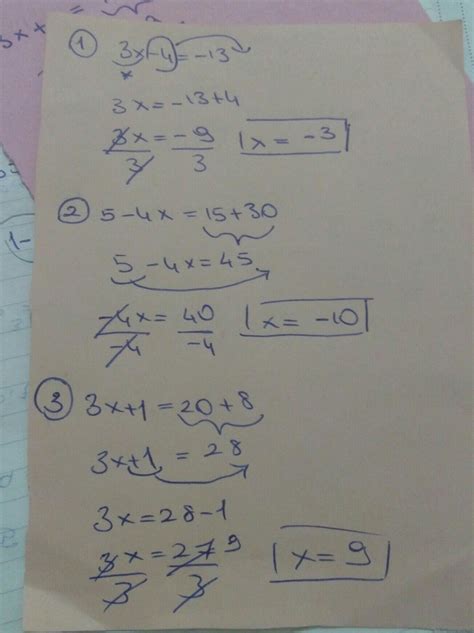 3x
① 3x-4=-13
3x=-13+4
3x/3=-9/3 x=-3
② 5-4x=15+30
1-
5-4x=45
-4x/-4=40/-4 x=-10
③ 3x+1=20+8
3x+1=28
3x=28-1
3x/3=27/3 9 x=9